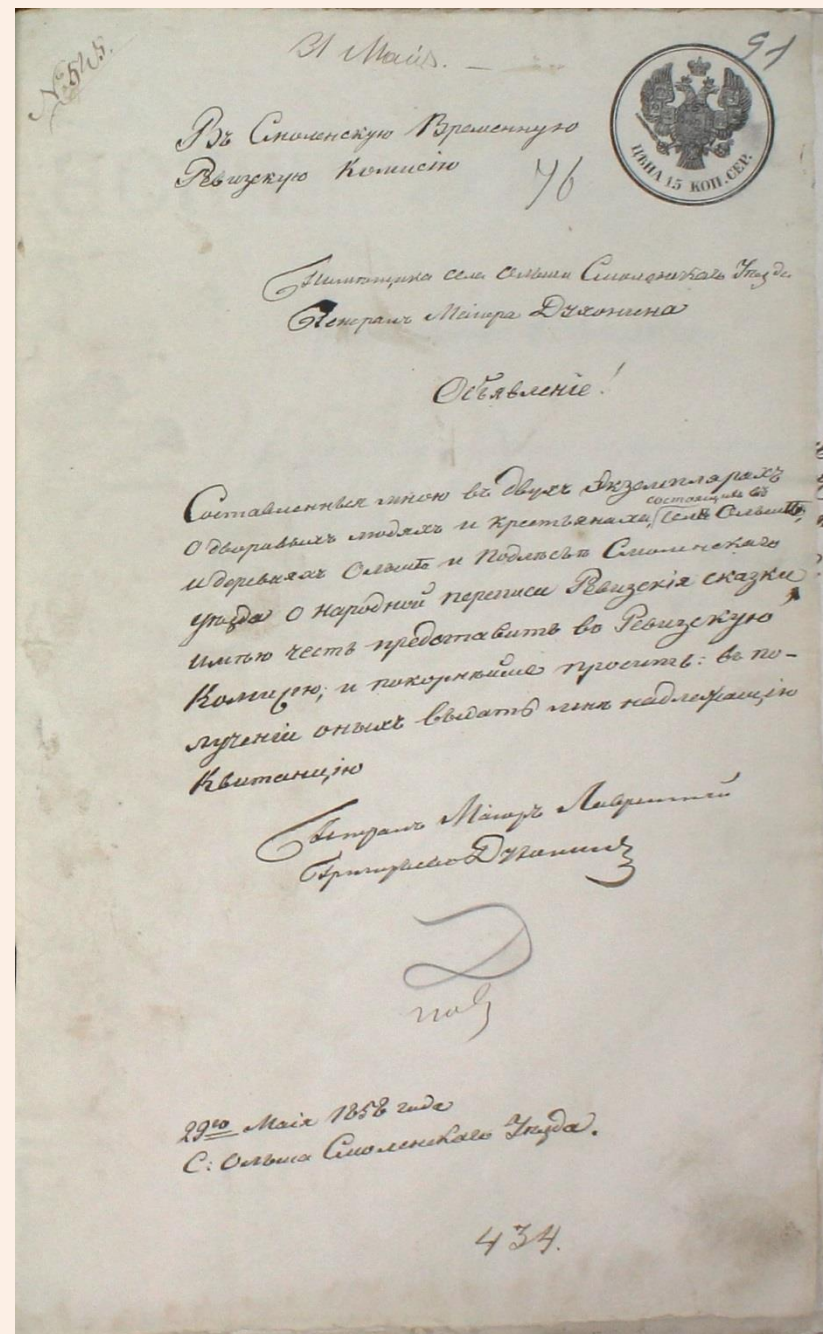 № 545.
31 Маія.
91
ЦѢНА 15 КОП. СЕР.
Въ Смоленскую Временную
Ревизскую Комисію
76
Помѣщика села Ольши Смоленскаго Уѣзда
Генералъ Маіора Духонина
Объявленіе!
Составленныя мною въ двухъ экземплярахъ
о дворовыхъ людяхъ и крестьянахъ, состоящихъ въ селѣ Ольшѣ,
и деревняхъ Ольшѣ и Подлѣсьѣ Смоленскаго
уѣзда о народной переписи Ревизскія сказки
имѣю честь представить во Ревизскую
Комисію; и покорнѣйше просить: въ по-
лученіи оныхъ выдать мнѣ надлежащію
Квитанцію
Генералъ Маіоръ Лаврентій
Григорьевъ Духонинъ
29го Маія 1858 года
С: Ольша Смоленскаго Уѣзда.
434.